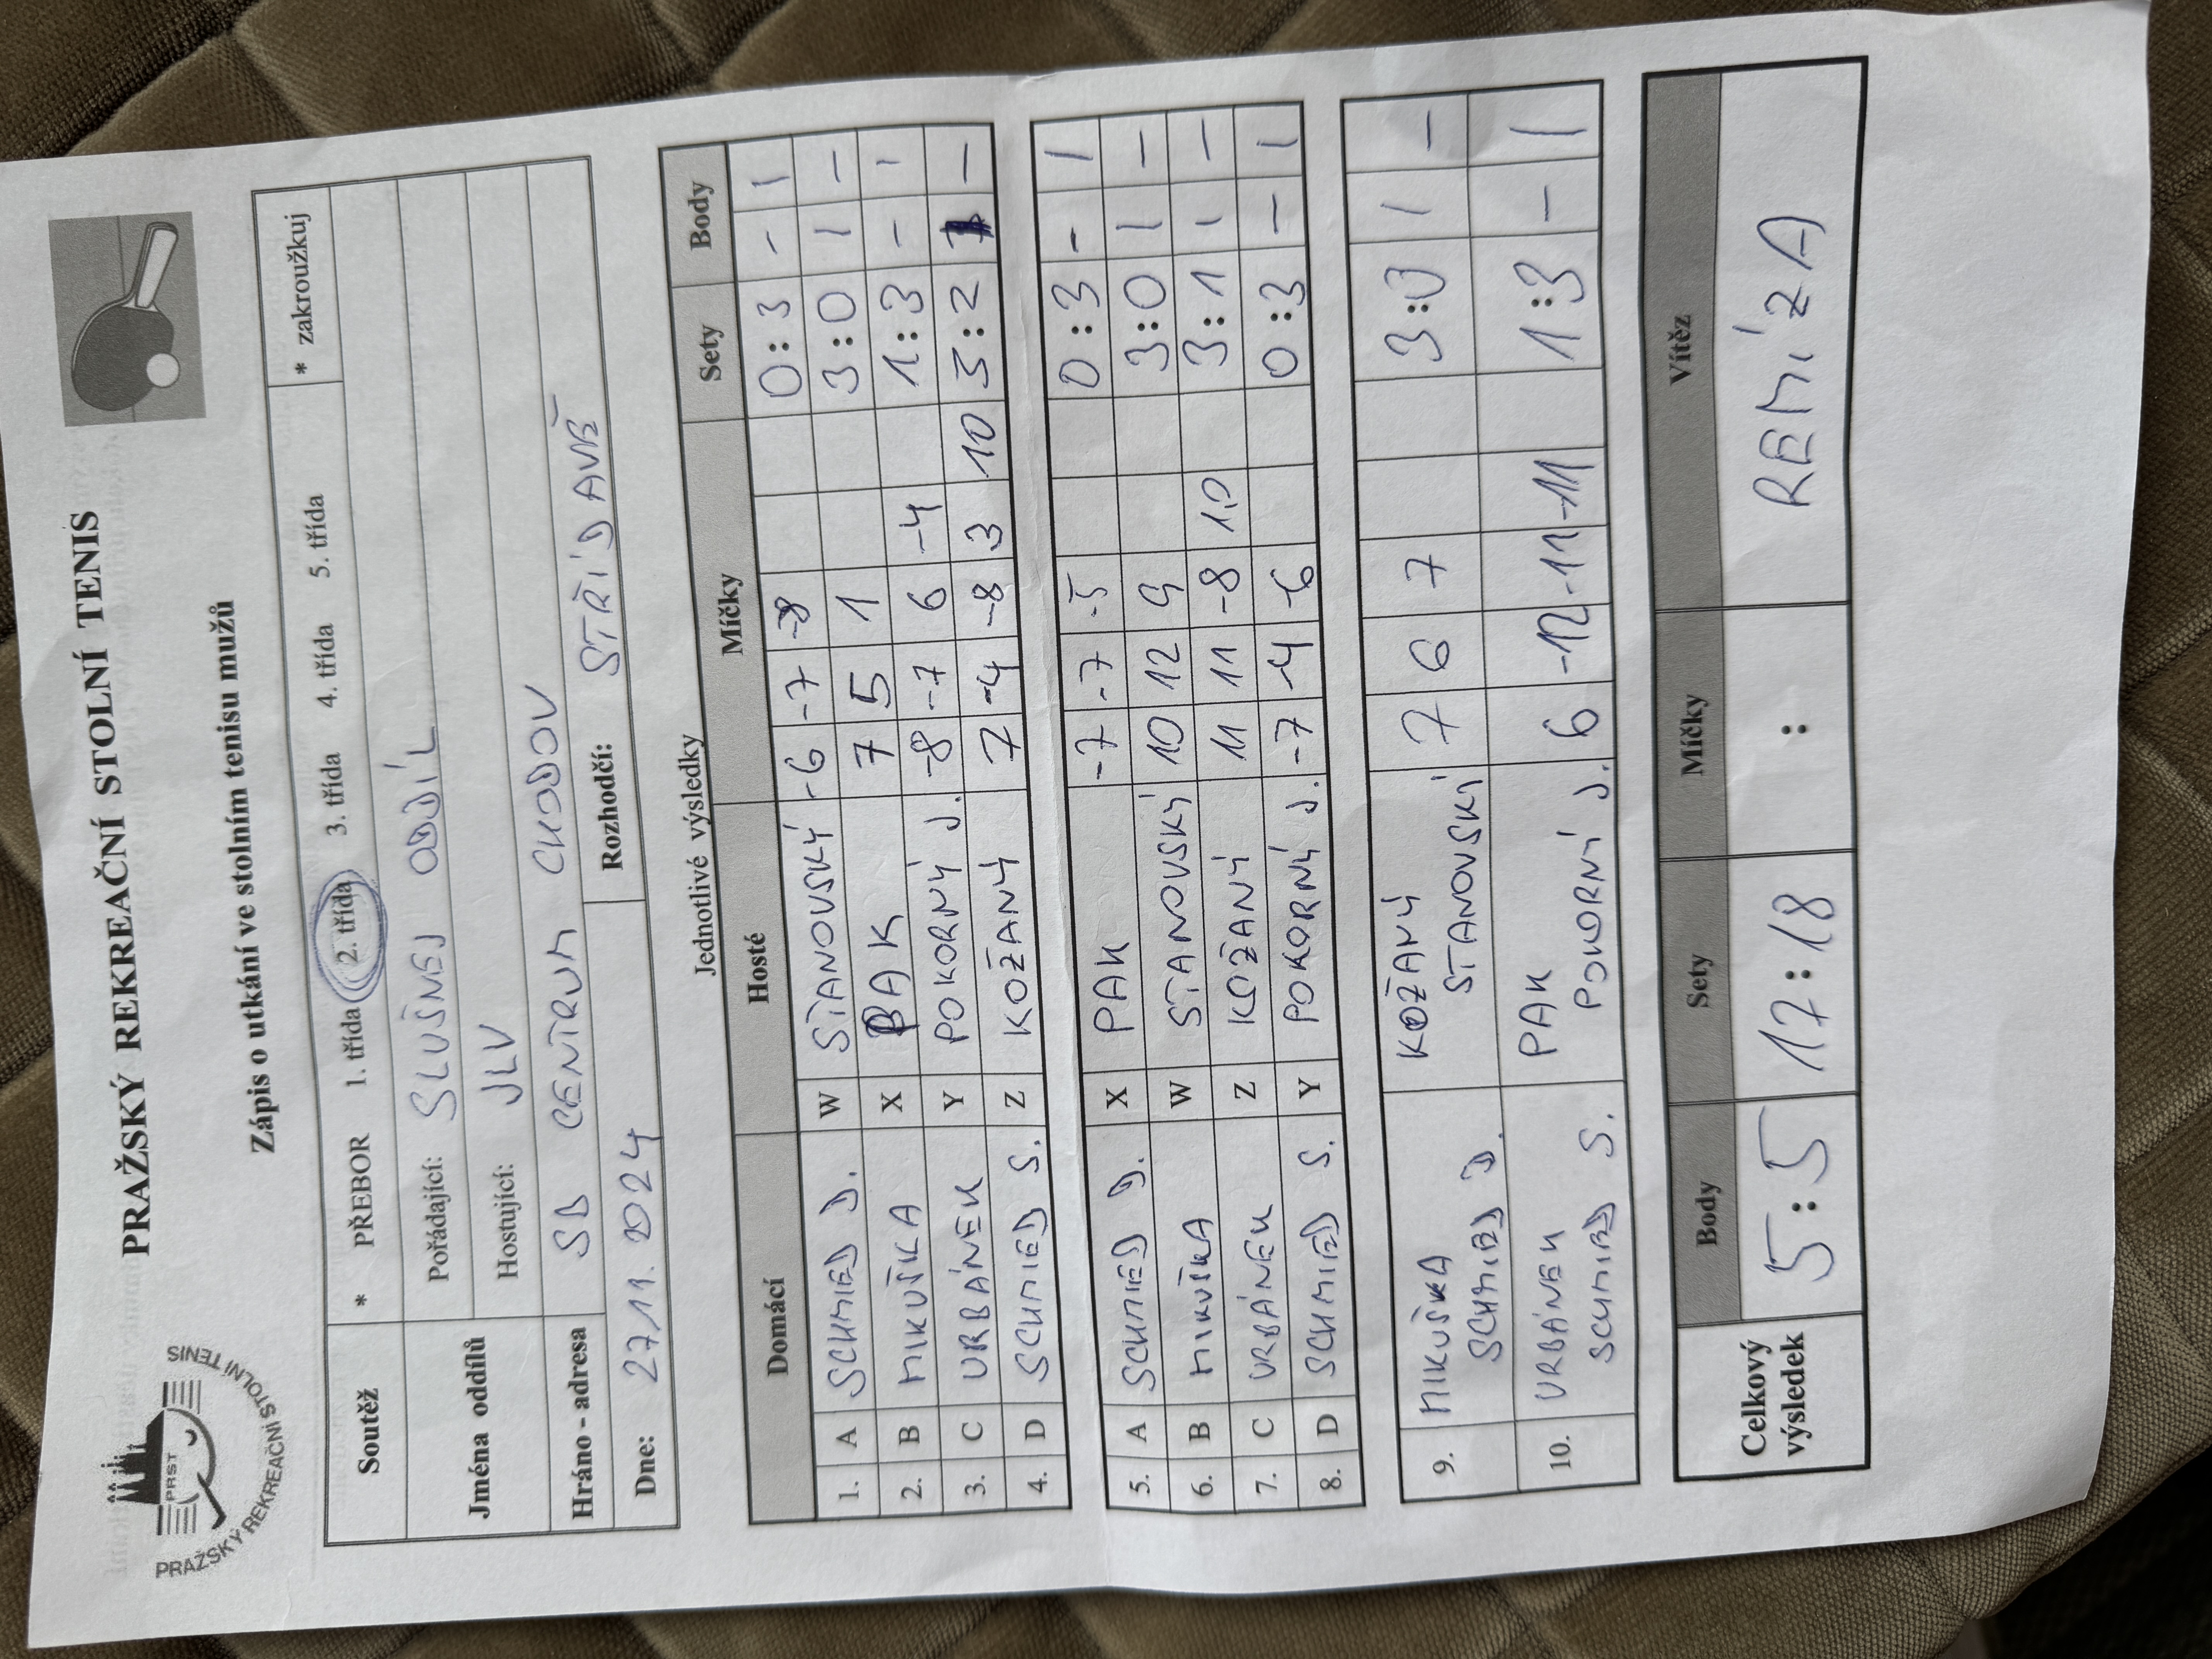 PRAŽSKÝ REKREAČNÍ STOLNÍ TENIS
PRST
PRAŽSKÝ REKREAČNÍ STOLNÍ TENIS
Zápis o utkání ve stolním tenisu mužů
Soutěž * PŘEBOR 1. třída 2. třída 3. třída 4. třída 5. třída * zakroužkuj
Jména oddílů Pořádající: SLUŠNEJ ODDÍL
Hostující: JLV
Hráno - adresa SD CENTRUM CHODOV
Dne: 27.11. 2024 Rozhodčí: STŘÍDAVĚ
Jednotlivé výsledky
Domácí Hosté Míčky Sety Body
1. A SCHMIED D. W STANOVSKÝ -6 -7 -8 0:3 - 1
2. B MIKUŠKA X PAK 7 5 1 3:0 1 -
3. C URBÁNEK Y POKORNÝ J. -8 -7 6 -4 1:3 - 1
4. D SCHMIED S. Z KOŽANÝ 7 -4 -8 3 10 3:2 1 -
5. A SCHMIED D. X PAK -7 -7 -5 0:3 - 1
6. B MIKUŠKA W STANOVSKÝ 10 12 9 3:0 1 -
7. C URBÁNEK Z KOŽANÝ 11 11 -8 10 3:1 1 -
8. D SCHMIED S. Y POKORNÝ J. -7 -4 -6 0:3 - 1
9. MIKUŠKA KOŽANÝ 7 6 7 3:0 1 -
SCHMIED D. STANOVSKÝ
10. URBÁNEK PAK 6 -12 -11 -11 1:3 - 1
SCHMIED S. POKORNÝ J.
Celkový výsledek Body Sety Míčky Vítěz
5:5 17:18 : REMÍZA